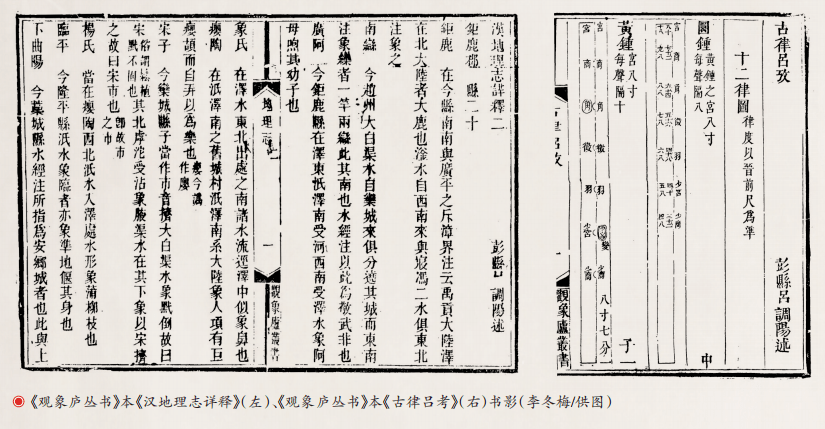 漢地理志詳釋二 彭縣呂調陽述
鉅鹿郡 縣二十
鉅鹿 在今縣南南與廣平之斥漳界注云禹貢大陸澤
在北大陸者大鹿也滏水自西南來與寖馮二水俱東北
注象之
南䜌 今趙州大白渠水自欒城來俱分遶其城而東南
注象䜌者一竿兩䜌此其南也水經注以此爲敬武非也
廣阿 今鉅鹿縣在澤東泜澤南受河西南受澤水象阿
母呴其幼子也
地理志 一 觀象廬叢書
象氏 在澤水東北出處之南諸水流逕澤中似象鼻也
廮陶 在泜澤南之舊城村泜澤南系大陸象人項有巨
癭頷而自弄以爲樂也 癭今譌作廮
宋子 今欒城縣子當作市音擠大白渠水象默倒故曰
宋 其北虖沱受沾象腋渠水在其下象以宋擠
之故曰宋市也 卽故市之市
楊氏 當在廮陶西北泜水入澤處水形象蒲柳枝也
臨平 今隆平縣泜水象臨者亦象準地偃其身也
下曲陽 今藁城縣水經注所指爲安鄉城者也此與上
古律呂攷 彭縣呂調陽述
十二律圖 律度以晉前尺爲準
圜鍾 黃鍾之宮八寸 每聲隔八 中
宮 商 角 徵 羽 少宮 少商
黃鍾 宮八寸 每聲隔十 八寸七分 子
宮 商 角 徵 羽
古律呂攷 一 觀象廬叢書
◉《观象庐丛书》本《汉地理志详释》(左)、《观象庐丛书》本《古律吕考》(右)书影(李冬梅/供图)